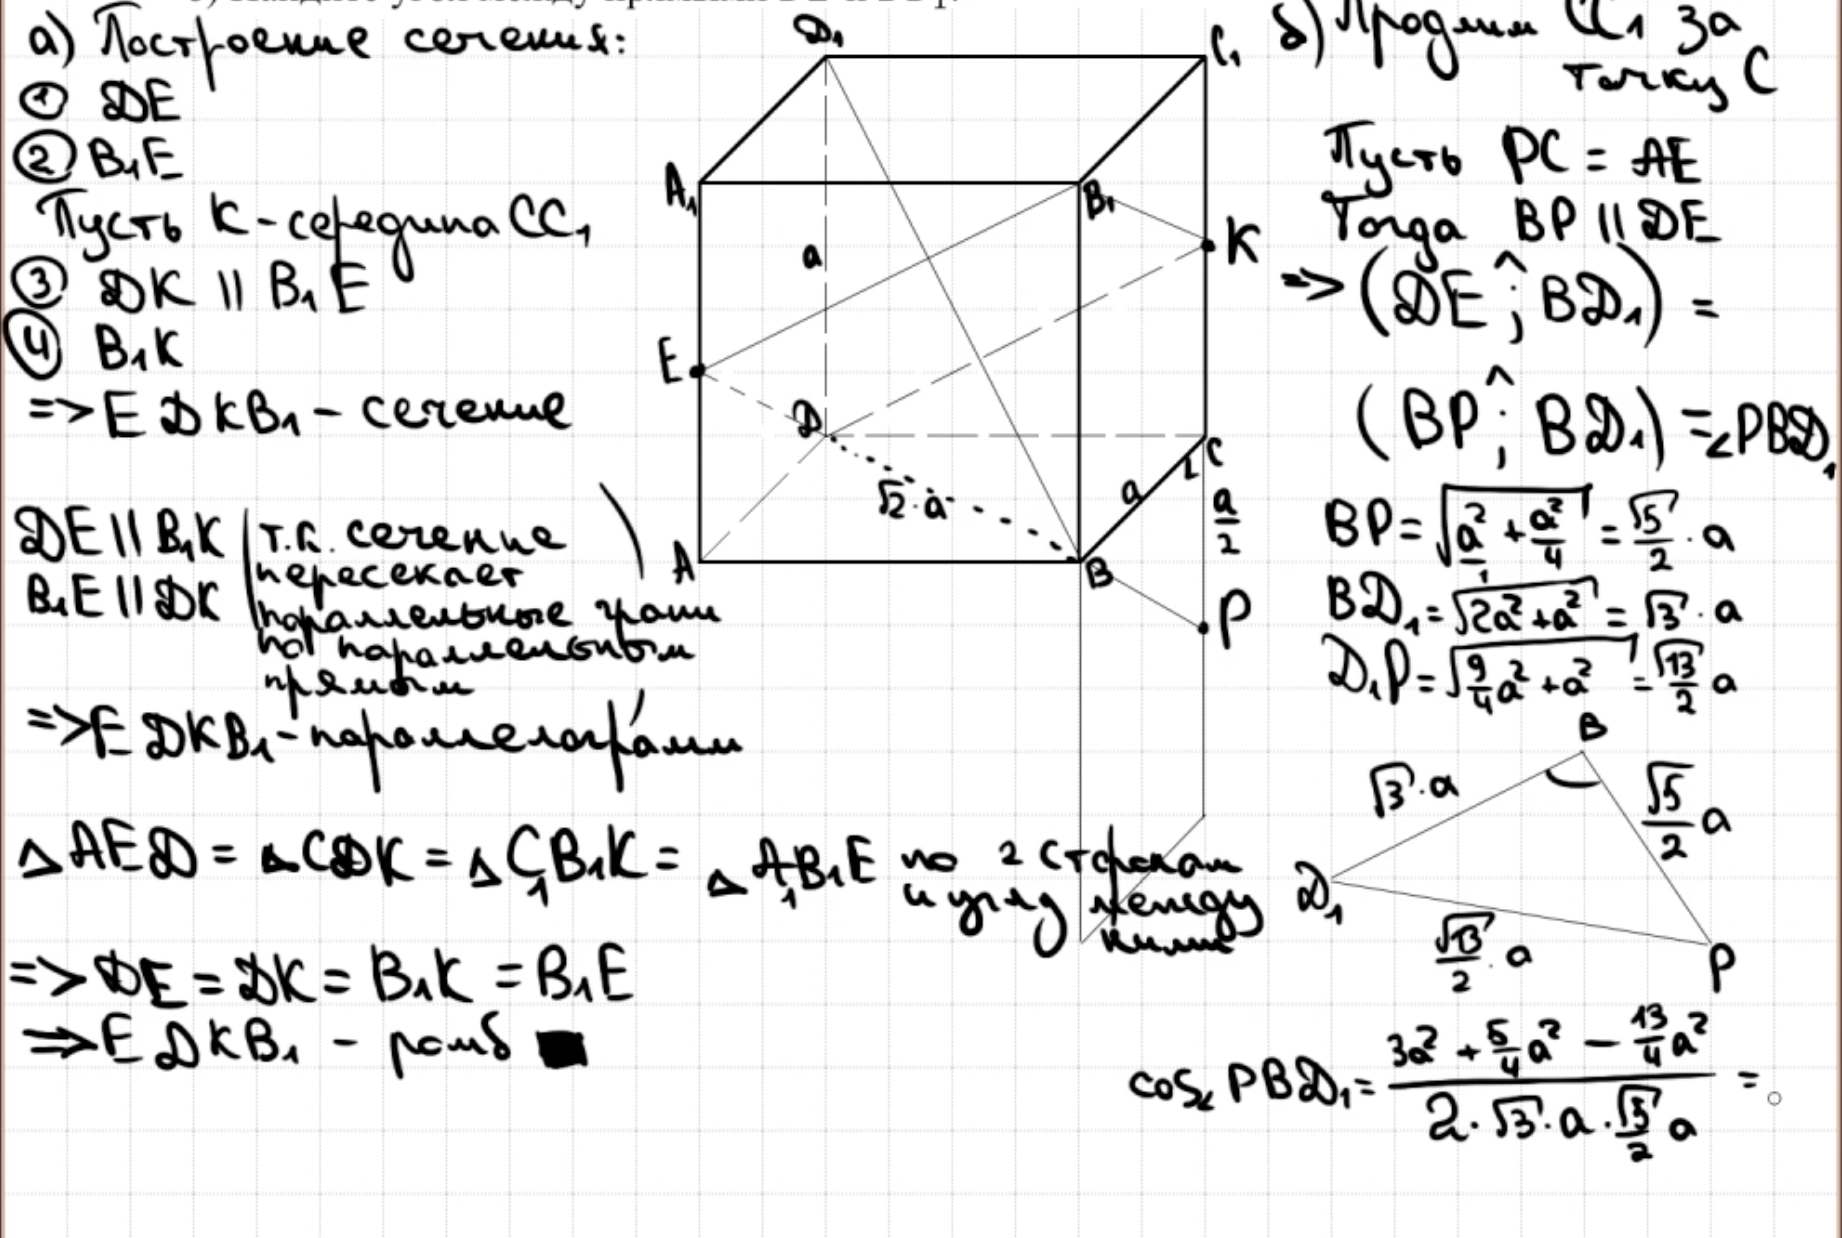 а) Построение сечения:
① DE
② B₁E
Пусть K - середина CC₁
③ DK || B₁E
④ B₁K
=> EDKB₁ - сечение
DE || B₁K
B₁E || DK
т.к. сечение
пересекает
параллельные грани
по параллельным
прямым
=> EDKB₁ - параллелограмм
△AED = △CDK = △C₁B₁K = △A₁B₁E по 2 сторонам
и углу между
ними
=> DE = DK = B₁K = B₁E
=> EDKB₁ - ромб ■
D₁
C₁
A₁
B₁
K
a
E
D
C
√2·a
a
a/2
A
B
P
б) Продлим CC₁ за
точку C
Пусть PC = AE
Тогда BP || DE
=> (DE ^; BD₁) =
(BP ^; BD₁) = ∠PBD₁
BP = √(a² + a²/4) = √5/2 · a
BD₁ = √(2a² + a²) = √3 · a
D₁P = √(9/4 a² + a²) = √13/2 a
B
√3·a
√5/2 a
D₁
√13/2 · a
P
cos∠PBD₁ = (3a² + 5/4 a² - 13/4 a²)/(2·√3·a·√5/2 a) =